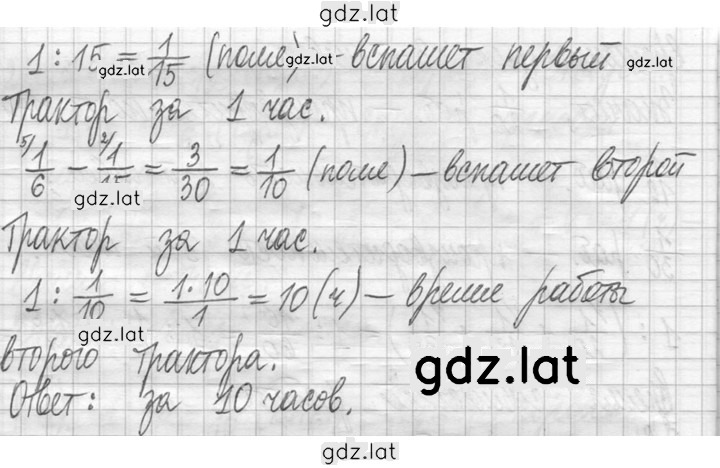 gdz.lat
1 : 15 = 1/15 (поле) gdz.lat - вспашет первый gdz.lat
gdz.lat
трактор за 1 час.
5/ 1/6 - 2/ 1/15 = 3/30 = 1/10 (поле) - вспашет второй
gdz.lat
трактор за 1 час.
1 : 1/10 = 1·10/1 = 10 (ч) - время работы
gdz.lat
второго трактора.
gdz.lat
Ответ: за 10 часов.
gdz.lat